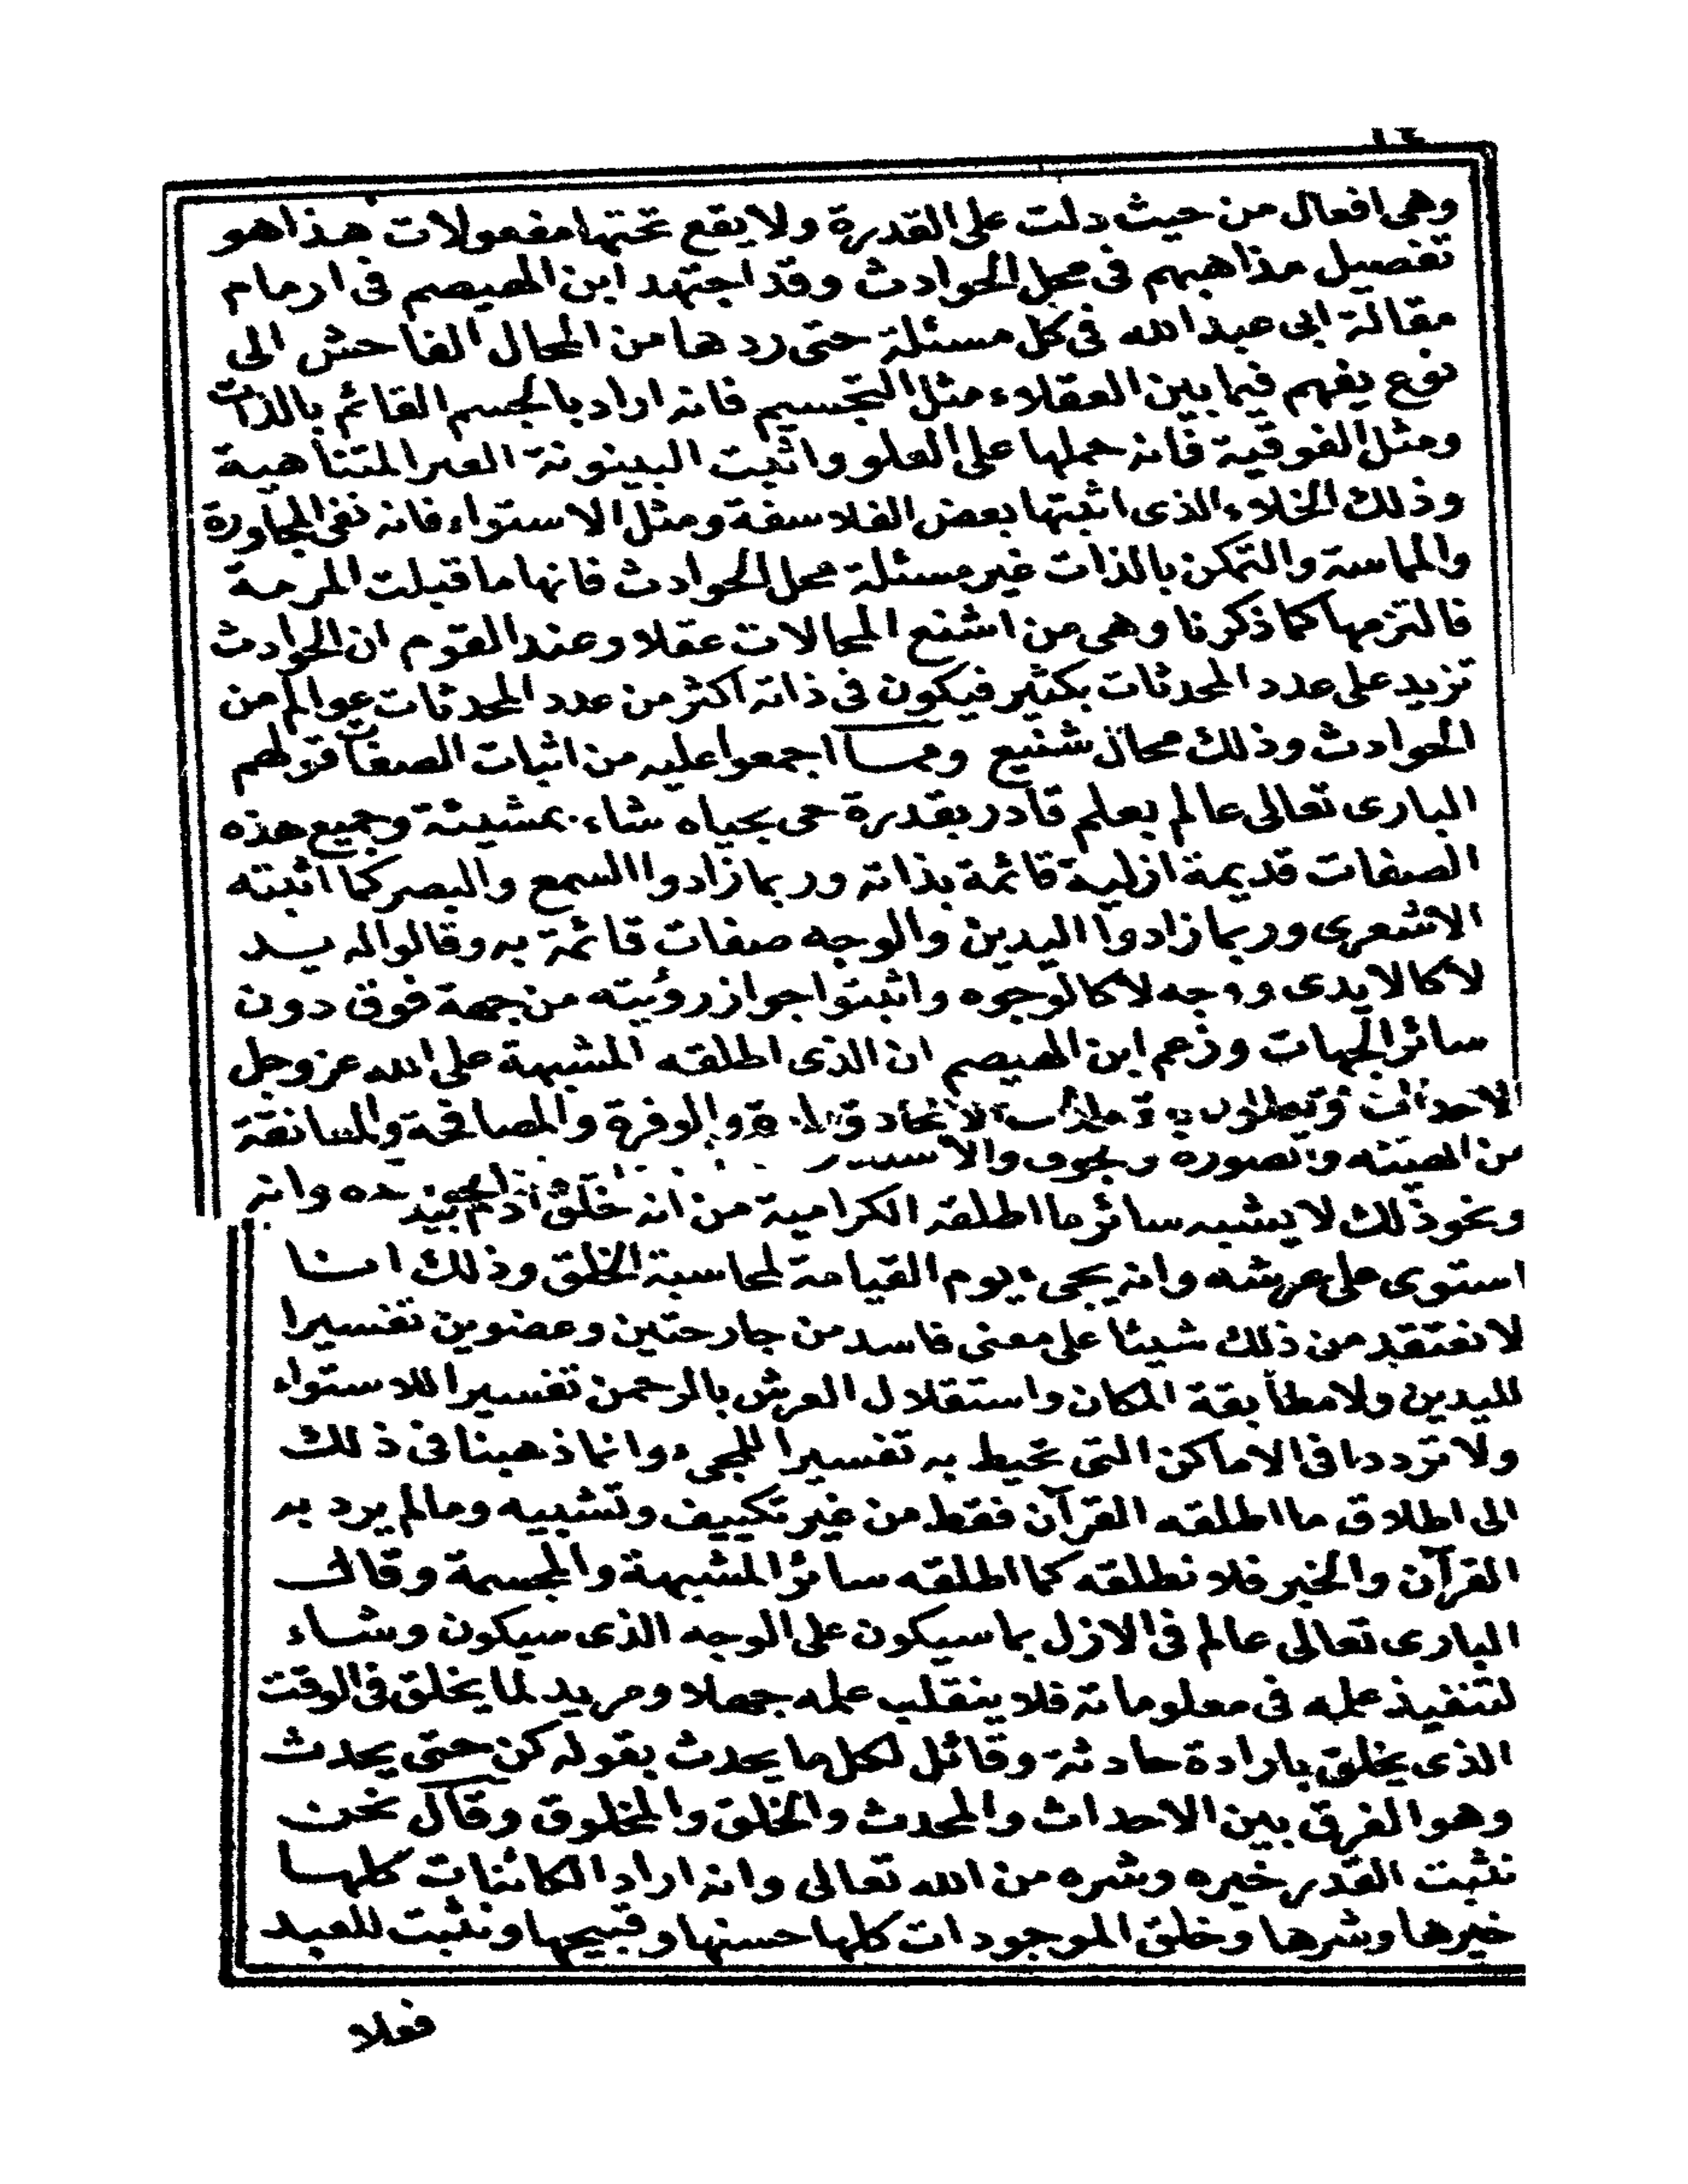 وهى افعال من حيث دلت على القدرة ولا يقع تحتها مفعولات هذا هو
تفصيل مذاهبهم فى محل الحوادث وقد اجتهد ابن الهيصم فى ارمام
مقالة ابى عبد الله فى كل مسئلة حتى ردها من المحال الفاحش الى
نوع يفهم فيما بين العقلاء مثل التجسيم فانه اراد بالجسم القائم بالذات
ومثل الفوقية فانه حملها على العلو واثبت البينونة الغير المتناهية
وذلك الخلاء الذى اثبتها بعض الفلاسفة ومثل الاستواء فانه نفى المجاورة
والمماسة والتمكن بالذات غير مسئلة محل الحوادث فانها ما قبلت المرمة
فالتزمها كما ذكرنا وهى من اشنع المحالات عقلا وعند القوم ان الحوادث
تزيد على عدد المحدثات بكثير فيكون فى ذاته اكثر من عدد المحدثات عوالم من
الحوادث وذلك محال شنيع ومما اجمعوا عليه من اثبات الصفات قولهم
البارى تعالى عالم بعلم قادر بقدرة حى بحياه شاء بمشيئة وجميع هذه
الصفات قديمة ازلية قائمة بذاته وربما زادوا السمع والبصر كما اثبته
الاشعرى وربما زادوا اليدين والوجه صفات قائمة به وقالوا له يد
لا كالايدى ووجه لا كالوجوه واثبتوا جواز رؤيته من جهة فوق دون
سائر الجهات وزعم ابن الهيصم ان الذى اطلقه المشبهة على الله عز وجل
والوفرة والمصافحة والمعانقة
من الهيئة والصورة والجوف
ونحو ذلك لا يشبه سائر ما اطلقه الكرامية من انه خلق ادم بيده وانه
استوى على عرشه وانه يجىء يوم القيامة لمحاسبة الخلق وذلك انا
لا نعتقد من ذلك شيئا على معنى فاسد من جارحتين وعضوين تفسيرا
لليدين ولا مطابقة المكان واستقلال العرش بالرحمن تفسيرا للاستواء
ولا ترددا فى الاماكن التى تحيط به تفسيرا للمجىء وانما ذهبنا فى ذلك
الى اطلاق ما اطلقه القرآن فقط من غير تكييف وتشبيه وما لم يرد به
القرآن والخبر فلا نطلقه كما اطلقه سائر المشبهة والمجسمة وقال
البارى تعالى عالم فى الازل بما سيكون على الوجه الذى سيكون وشاء
لتنفيذ علمه فى معلوماته فلا ينقلب علمه جهلا ومريد لما يخلق فى الوقت
الذى يخلق بارادة حادثة وقائل لكل ما يحدث بقوله كن حتى يحدث
وهو الفرق بين الاحداث والمحدث والخلق والمخلوق وقال نحن
نثبت القدر خيره وشره من الله تعالى وانه اراد الكائنات كلها
خيرها وشرها وخلق الموجودات كلها حسنها وقبيحها ونثبت للعبد
فعلا